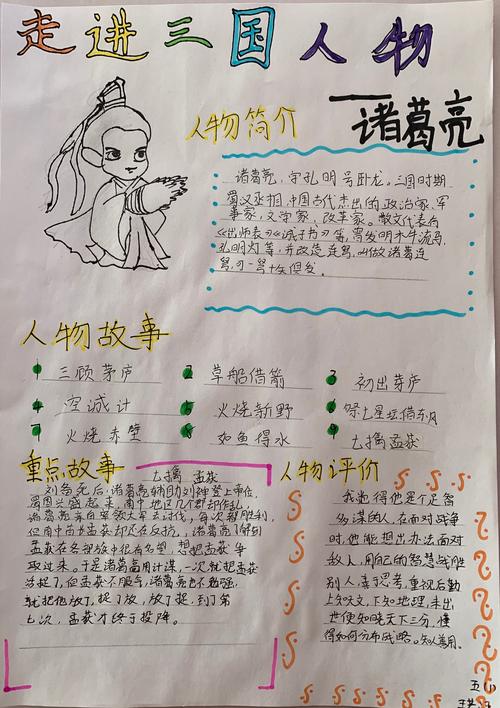 走进三国人物
——诸葛亮
人物简介
诸葛亮，字孔明号卧龙。三国时期
蜀汉丞相，中国古代杰出的政治家，军
事家，文学家，改革家。散文代表有
《出师表》《诫子书》等，曾发明木牛流马，
孔明灯等，并改造连弩，叫做诸葛连
弩，可一弩十矢俱发。
人物故事
1 三顾茅庐
2 草船借箭
3 初出茅庐
4 空诚计
5 火烧新野
6 祭七星坛借东风
7 火烧赤壁
8 如鱼得水
9 七擒孟获
重点故事
七擒孟获
刘备死后，诸葛亮辅助刘禅登上帝位，
蜀国兴盛起来，南中地区几个郡却作乱，
诸葛亮亲自率领大军去讨伐，每次都胜利，
但南中酋孟获却还在反抗，诸葛亮了解到
孟获在各部族中很有名望，想把孟获争
取过来。于是诸葛亮用计谋，一次就把孟获
活捉了，但孟获不服气，诸葛亮也不勉强，
就把他放了，捉了放，放了捉，到了第
七次，孟获才终于投降。
人物评价
我觉得他是个足智
多谋的人，在面对战争
时，他能想出办法面对
敌人，用自己的智慧战胜
别人，善于思考，重视后勤
上知天文，下知地理，未出
世便知晓天下三分，懂
得如何分布战略。知人善用。
五(1)